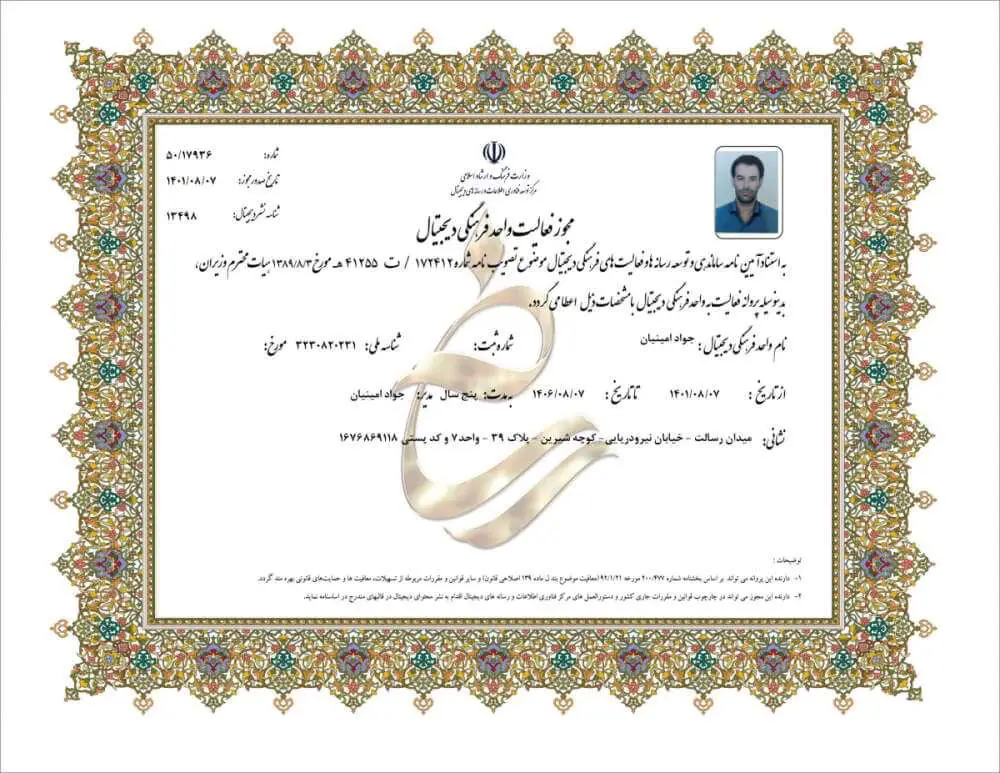 شماره: ۵۰/۱۷۹۳۶
تاریخ صدور مجوز: ۱۴۰۱/۰۸/۰۷
شناسه نشر دیجیتال: ۱۳۴۹۸
وزارت فرهنگ و ارشاد اسلامی
مرکز توسعه فناوری اطلاعات و رسانه های دیجیتال
مجوز فعالیت واحد فرهنگی دیجیتال
به استناد آیین نامه ساماندهی و توسعه رسانه ها و فعالیت های فرهنگی دیجیتال موضوع تصویب نامه شماره ۱۷۲۴۱۲ / ت ۴۱۲۵۵ هـ مورخ ۱۳۸۹/۸/۳ هیات محترم وزیران،
بدینوسیله پروانه فعالیت به واحد فرهنگی دیجیتال با مشخصات ذیل اعطا می گردد.
نام واحد فرهنگی دیجیتال: جواد امینیان شماره ثبت: شناسه ملی: ۳۲۳۰۸۲۰۲۳۱ مورخ:
از تاریخ: ۱۴۰۱/۰۸/۰۷ تا تاریخ: ۱۴۰۶/۰۸/۰۷ به مدت: پنج سال مدیر: جواد امینیان
نشانی: میدان رسالت - خیابان نیرودریایی- کوچه شیرین - پلاک ۳۹ - واحد۷ و کد پستی ۱۶۷۶۸۶۹۱۱۸
توضیحات :
۱- دارنده این پروانه می تواند بر اساس بخشنامه شماره ۲۰۰/۴۷۷ مورخه ۹۲/۱/۲۱ (معافیت موضوع بند ل ماده ۱۳۹ اصلاحی قانون) و سایر قوانین و مقررات مربوطه از تسهیلات، معافیت ها و حمایت‌های قانونی بهره مند گردد.
۲- دارنده این مجوز می تواند در چارچوب قوانین و مقررات جاری کشور و دستورالعمل های مرکز فناوری اطلاعات و رسانه های دیجیتال اقدام به نشر محتوای دیجیتال در قالبهای مندرج در اساسنامه نماید.